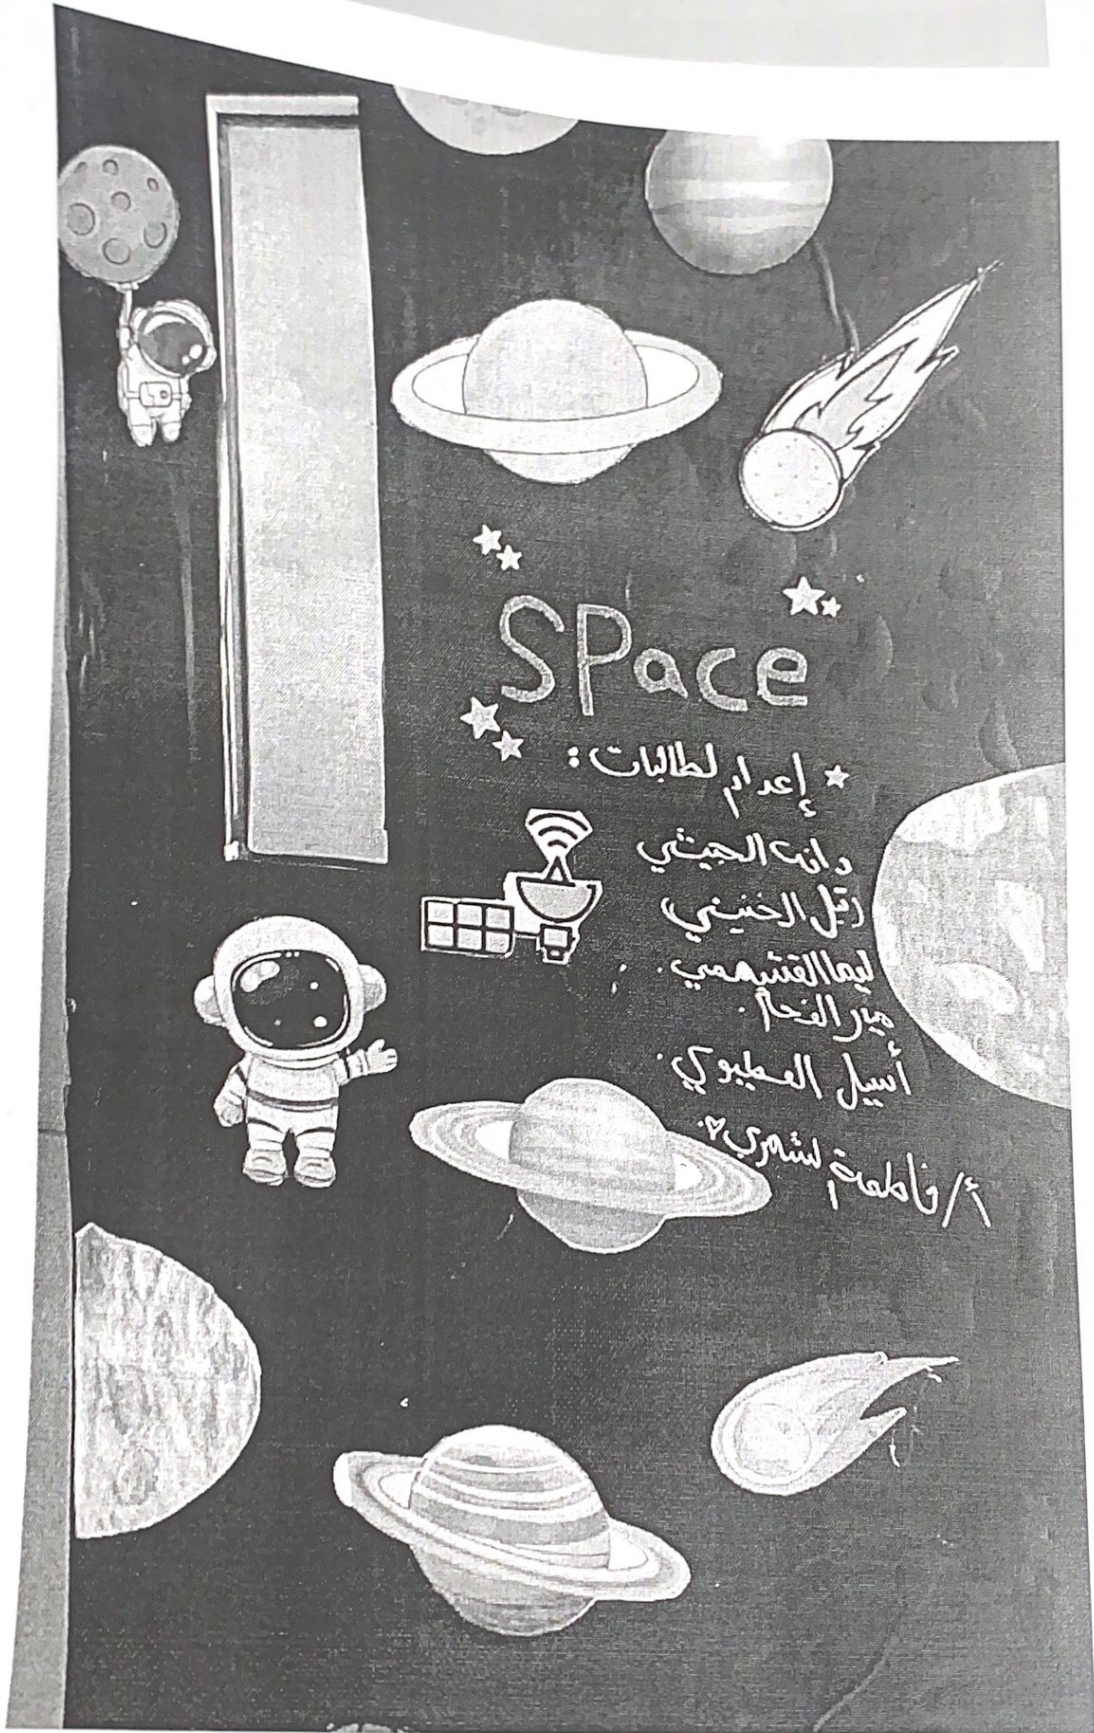 SPace
إعداد لطالبات :
دانت الجيشي
رتبل الخنيني
ليما القشهمي.
هير الفحام.
أسيل العطيوي.
أ/ فاطمة لشمري